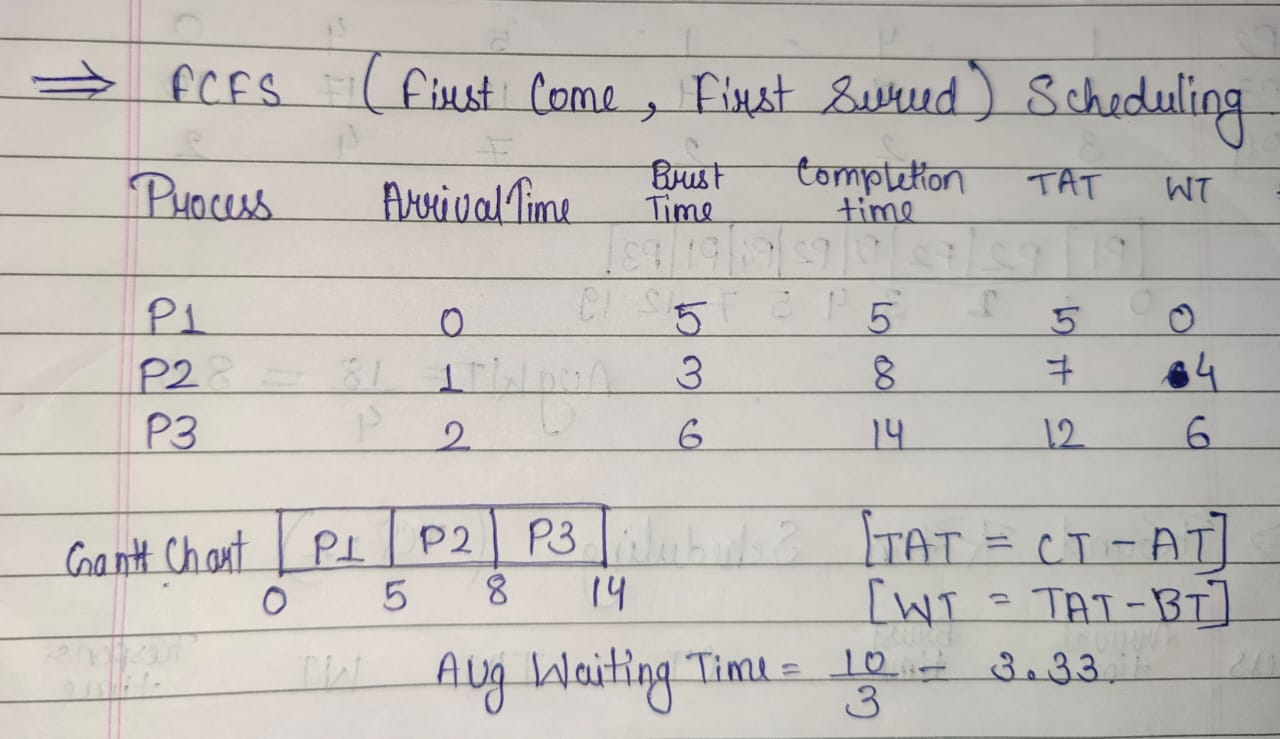 ⇒ FCFS (First Come, First Surued) Scheduling
Process Arrival Time Burst Time Completion time TAT WT
P1 0 5 5 5 0
P2 1 3 8 7 4
P3 2 6 14 12 6
Gantt Chart | P1 | P2 | P3 | [TAT = CT - AT]
0 5 8 14 [WT = TAT - BT]
Avg Waiting Time = 10/3 = 3.33